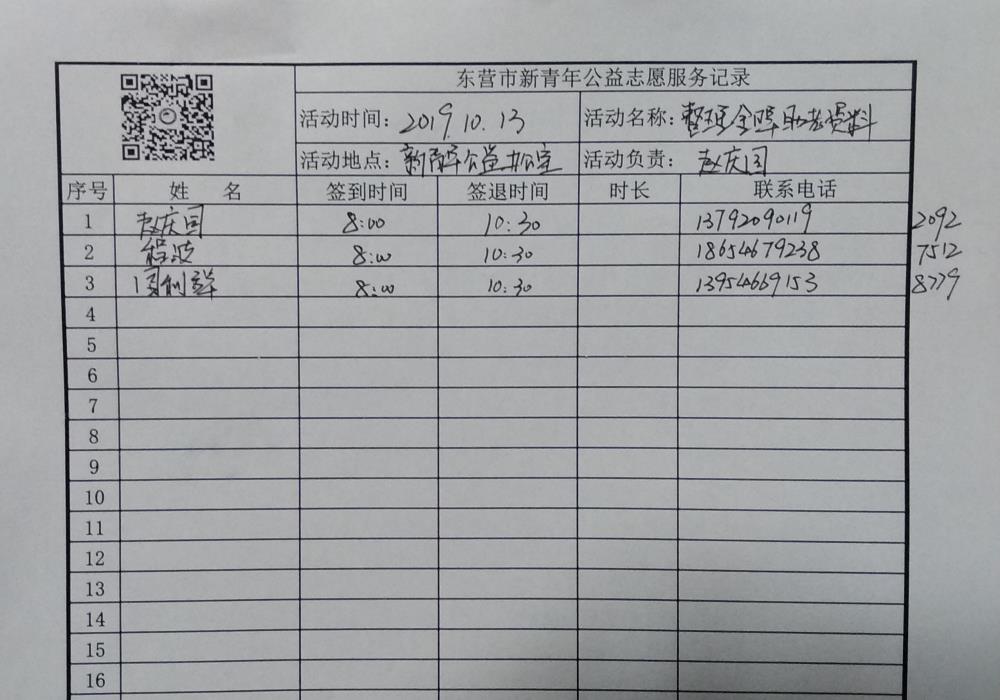 东营市新青年公益志愿服务记录
活动时间：2019.10.13 活动名称：整理金晖助老资料
活动地点：新青年公益办公室 活动负责：赵庆国
序号 姓 名 签到时间 签退时间 时长 联系电话
1 赵庆国 8:00 10:30 13792090119 2092
2 程波 8:00 10:30 18654679238 7512
3 周利群 8:00 10:30 13954669153 8779
4
5
6
7
8
9
10
11
12
13
14
15
16